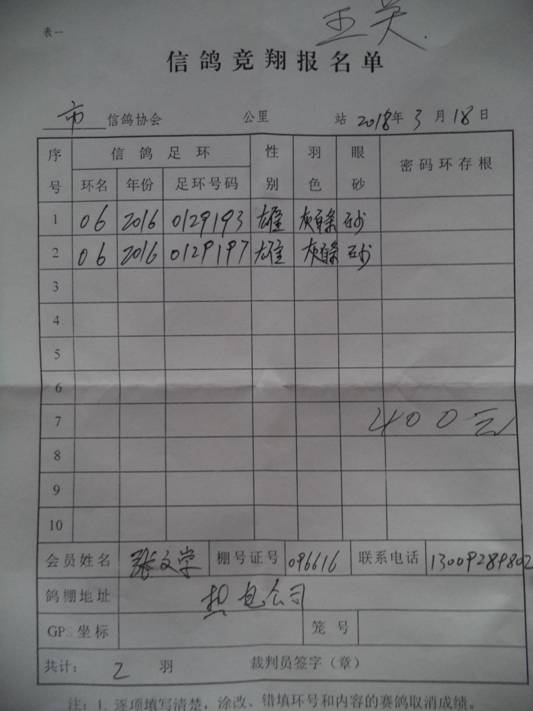 表一
王关
信鸽竞翔报名单
市 信鸽协会 公里 站 2018年 3 月 18 日
序号 信鸽足环 性别 羽色 眼砂 密码环存根
环名 年份 足环号码
1 06 2016 0129193 雄 灰白条 砂
2 06 2016 0129197 雄 灰白条 砂
3
4
5
6
7 400元
8
9
10
会员姓名 张文学 棚号证号 096616 联系电话 13009284802
鸽棚地址 热电公司
GPS坐标 笼号
共计： 2 羽 裁判员签字（章）
注：1. 逐项填写清楚，涂改、错填环号和内容的赛鸽取消成绩。